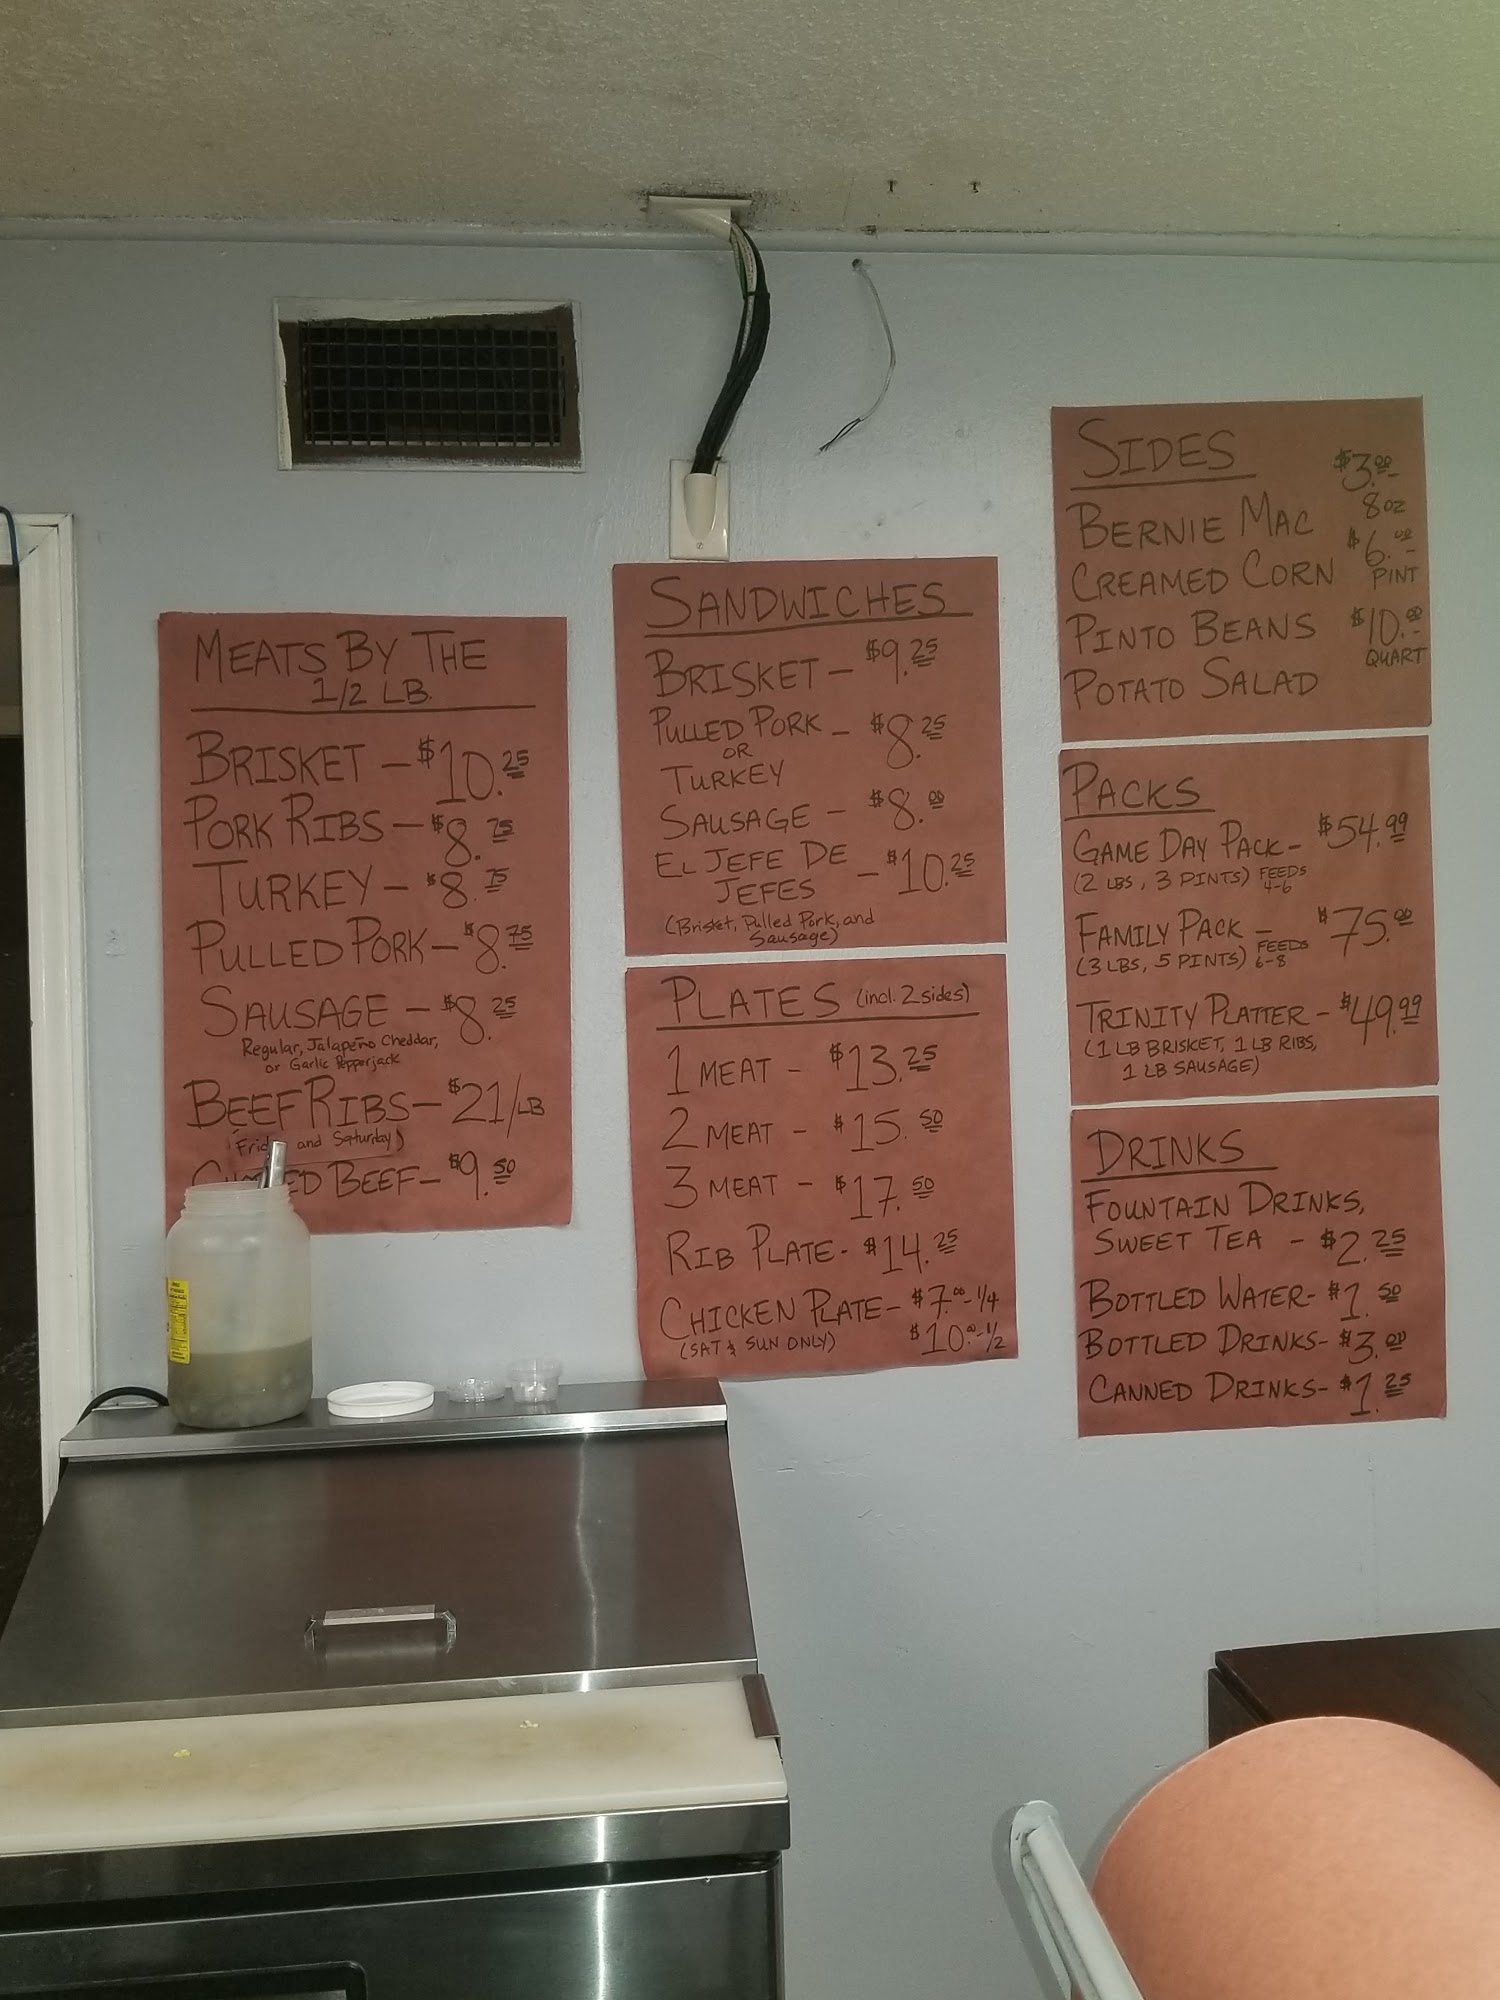 MEATS BY THE
1/2 LB.
BRISKET — $10.25
PORK RIBS — $8.75
TURKEY — $8.75
PULLED PORK — $8.75
SAUSAGE — $8.25
Regular, Jalapeño Cheddar,
or Garlic Pepperjack
BEEF RIBS — $21/LB
and Saturday)
BEEF — $9.50
SANDWICHES
BRISKET — $9.25
PULLED PORK — $8.25
OR
TURKEY
SAUSAGE — $8.00
EL JEFE DE
JEFES — $10.25
(Brisket, Pulled Pork, and
Sausage)
PLATES (incl. 2 sides)
1 MEAT - $13.25
2 MEAT - $15.50
3 MEAT - $17.50
RIB PLATE - $14.25
CHICKEN PLATE - $7.00 - 1/4
(SAT & SUN ONLY) $10.00 - 1/2
SIDES $3.00
8 OZ
BERNIE MAC $6.00
CREAMED CORN PINT
PINTO BEANS $10.00
QUART
POTATO SALAD
PACKS
GAME DAY PACK - $54.99
(2 LBS, 3 PINTS) FEEDS
4-6
FAMILY PACK - $75.00
(3 LBS, 5 PINTS) FEEDS
6-8
TRINITY PLATTER - $49.99
(1 LB BRISKET, 1 LB RIBS,
1 LB SAUSAGE)
DRINKS
FOUNTAIN DRINKS,
SWEET TEA - $2.25
BOTTLED WATER - $1.50
BOTTLED DRINKS - $3.00
CANNED DRINKS - $1.25